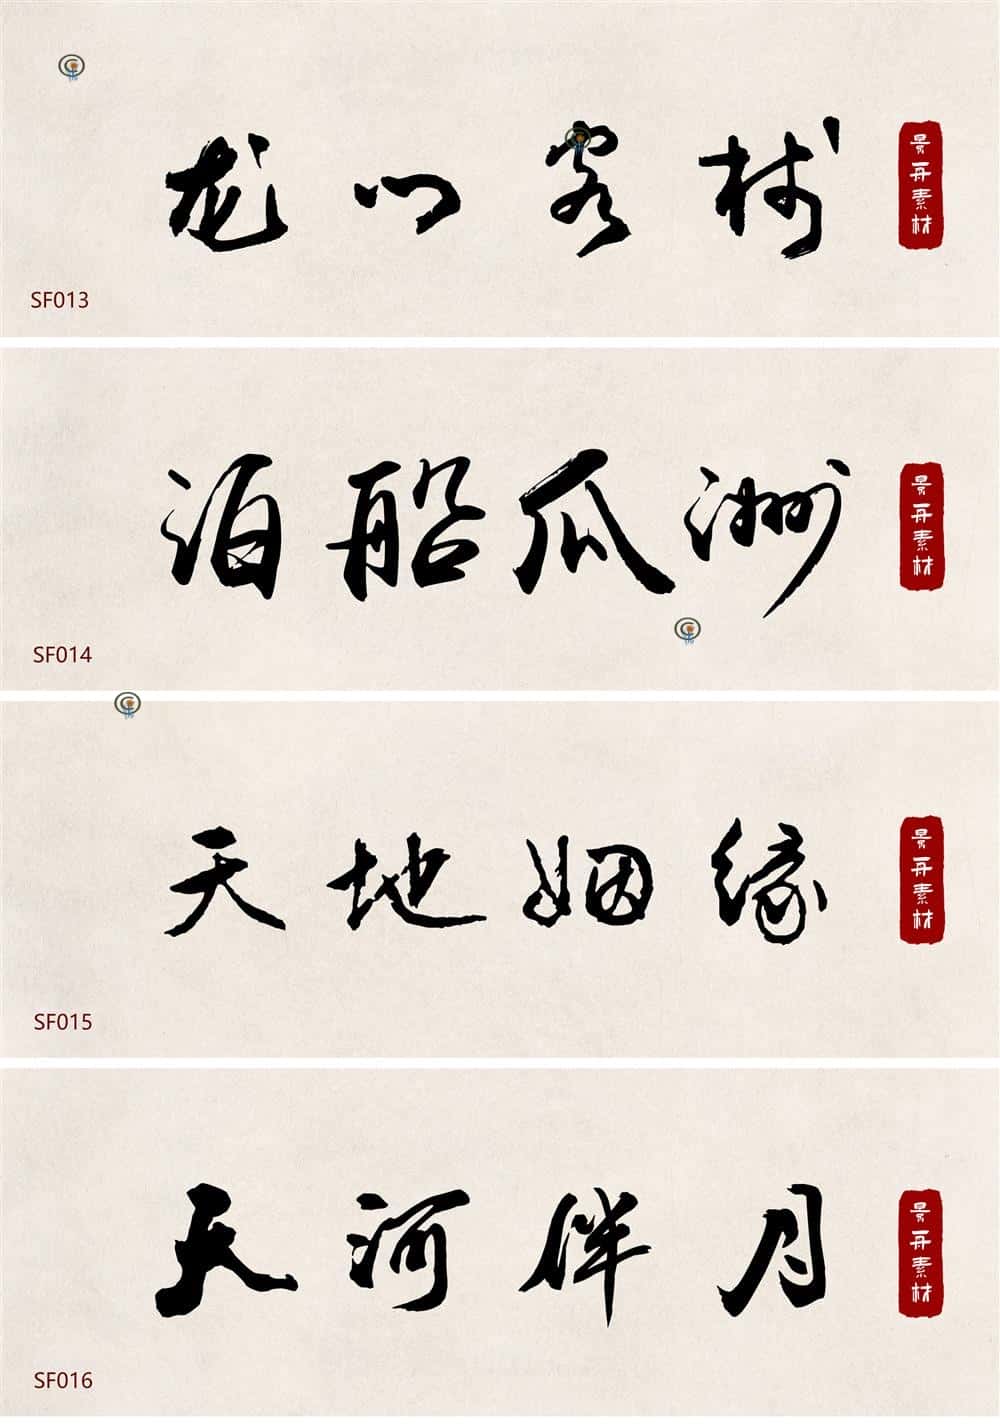 龙门客栈
景舟素材
SF013
泊船瓜洲
景舟素材
SF014
天地姻缘
景舟素材
SF015
天河伴月
景舟素材
SF016